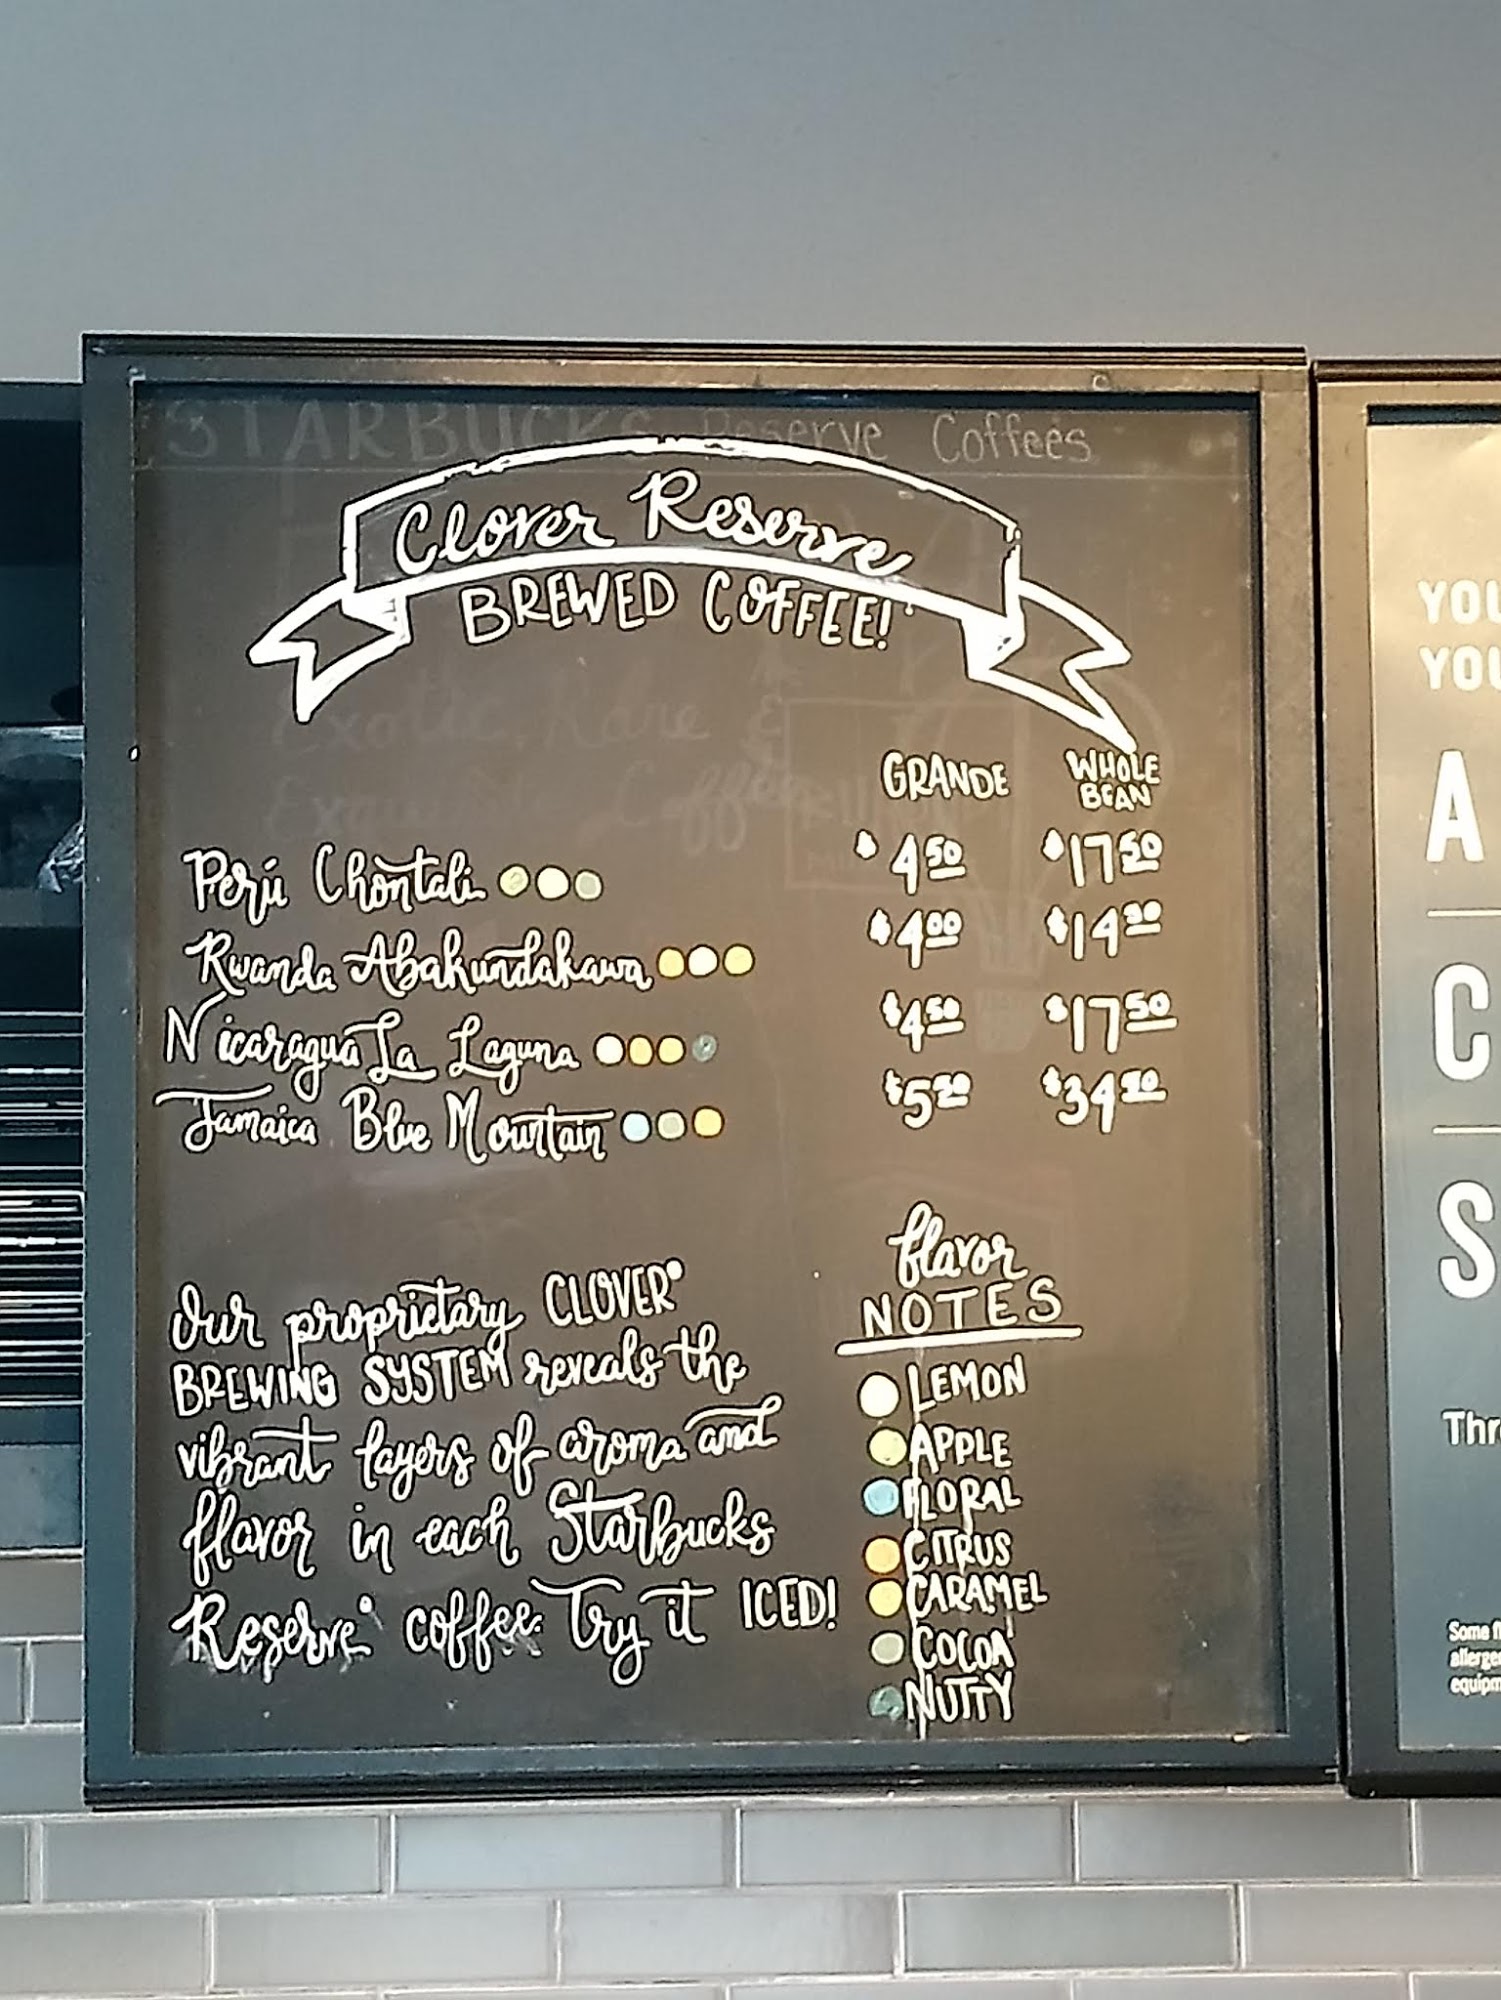 STARBUCKS Reserve Coffees
Clover Reserve
BREWED COFFEE!
Exotic, Rare &
GRANDE WHOLE
BEAN
Perú Chontali $4.50 $17.50
Rwanda Abakundakawa $4.00 $14
Nicaragua La Laguna $4.50 $17.50
Jamaica Blue Mountain $5 $34
Our proprietary CLOVER®
BREWING SYSTEM reveals the
vibrant layers of aroma and
flavor in each Starbucks
Reserve® coffee. Try it ICED!
flavor
NOTES
LEMON
APPLE
FLORAL
CITRUS
CARAMEL
COCOA
NUTTY
YOU
YOU
A
C
S
Thr
Some
allerge
equipm